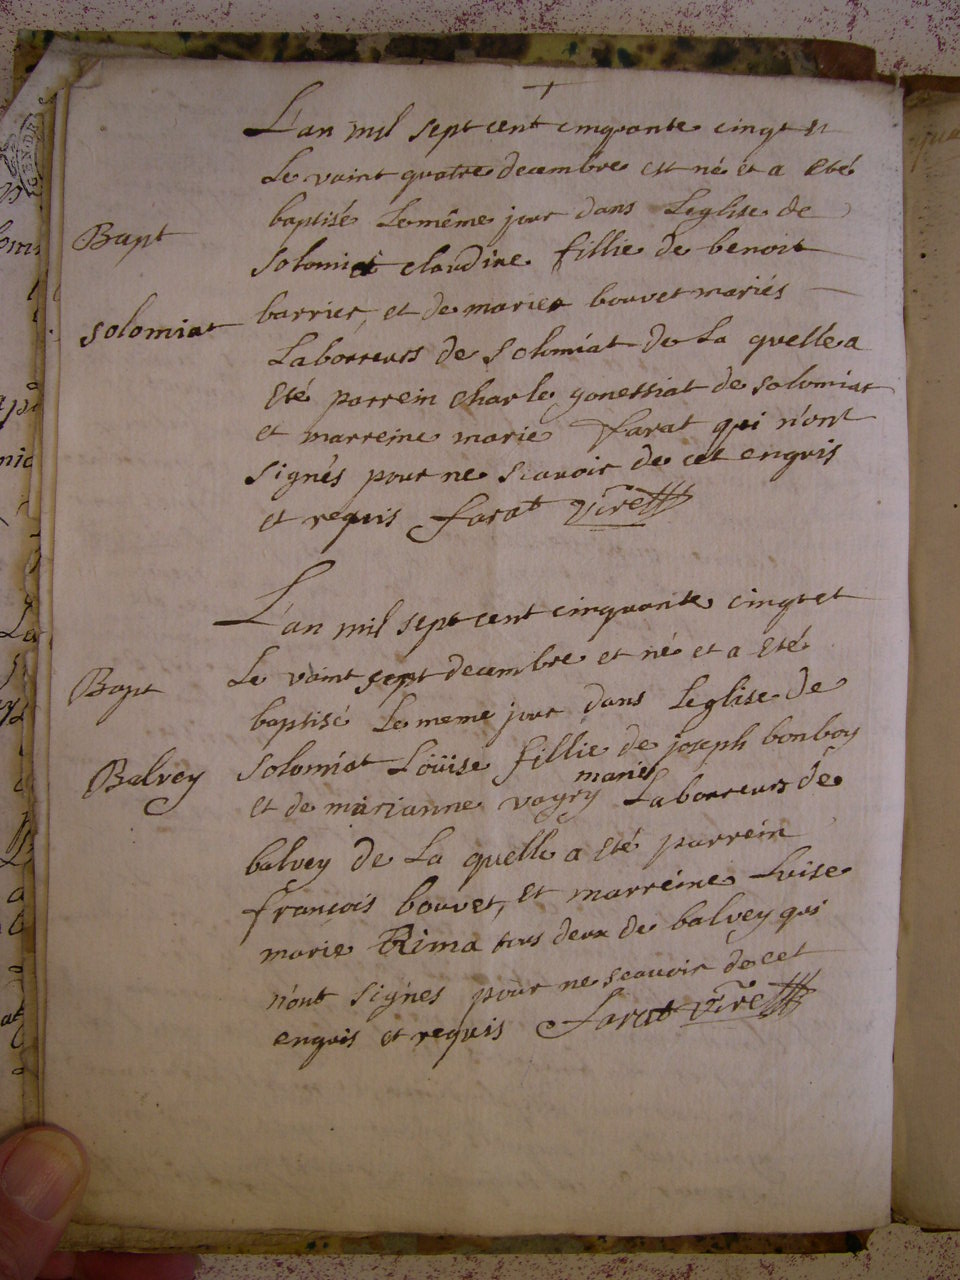 L'an mil sept cent cinquante cinqt et
Le vaint quatre decembre est né et a eté
baptisé Le même jour dans Leglise de
Bapt
Solomiat claudine fillie de benoit
barrier, et de marie bouvet mariés
solomiat
Laboureurs de Solomiat de La quelle a
eté parrein charle gonessiat de solomiat
et marreine marie farat qui n'ont
signés pour ne scavoir de cet enquis
et requis farat vire
L'an mil sept cent cinquante cinqt et
Le vaint sept decembre et né et a eté
Bapt
baptisé Le meme jour dans Leglise de
Solomiat Loüise fillie de joseph bonboy
Balvey
et de marianne vagry mariés Laboureurs de
balvey de La quelle a eté parrein
francois bouvet, et marreine Luise
marie Rima tous deux de balvey qui
n'ont signés pour ne scavoir de cet
enquis et requis farat vire